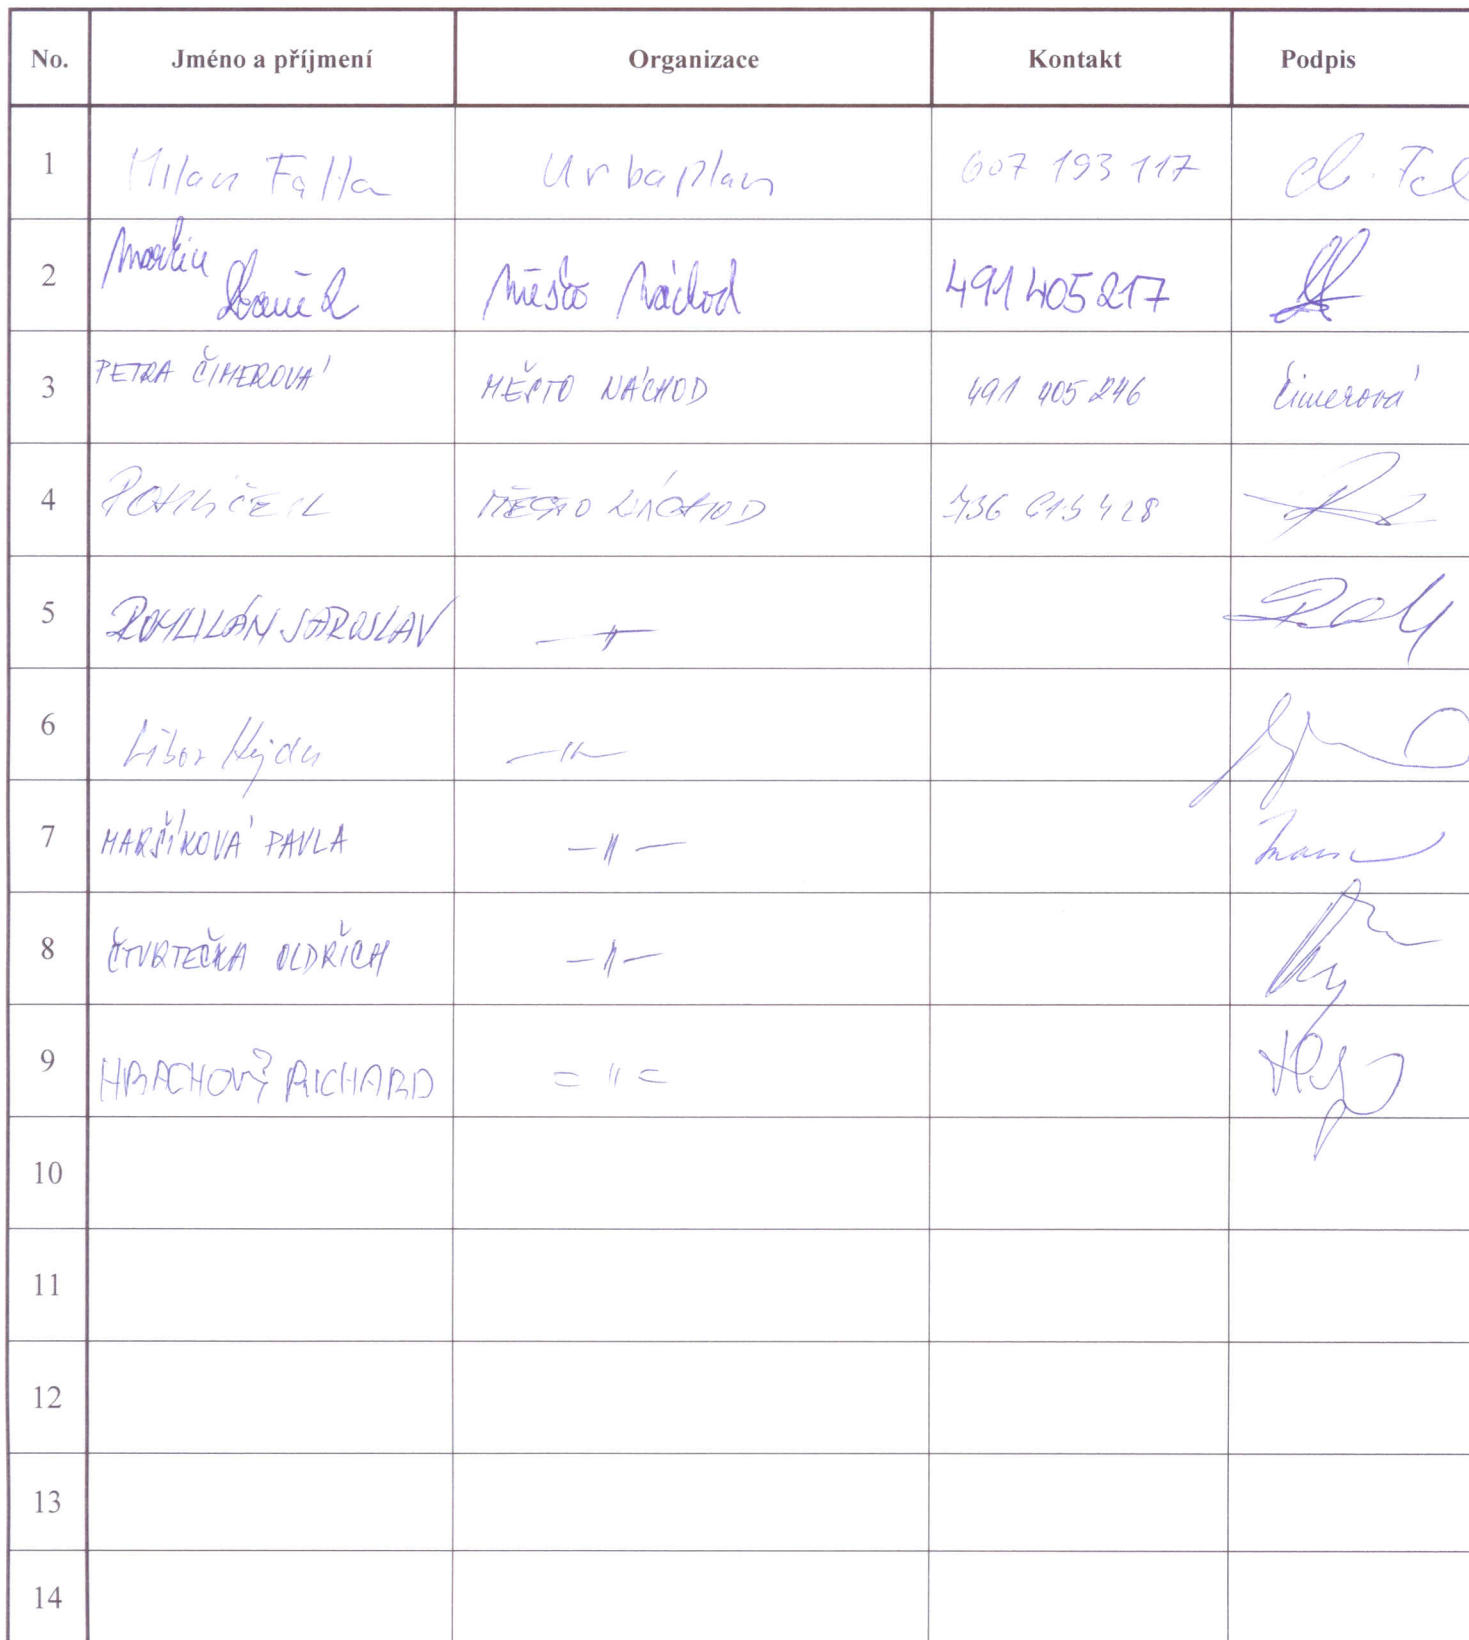 No. Jméno a příjmení Organizace Kontakt Podpis
1 Milan Falta Urbaplan 607 193 117
2 Martin Město Náchod 491 405 217
3 PETRA ČIMEROVÁ MĚSTO NÁCHOD 491 405 246 Čimerová
4 MĚSTO NÁCHOD
5 JAROSLAV —〃—
6 Libor —〃—
7 MARŠÍKOVÁ PAVLA —〃—
8 ČTVRTEČKA OLDŘICH —〃—
9 HRACHOVÝ RICHARD =〃=
10
11
12
13
14